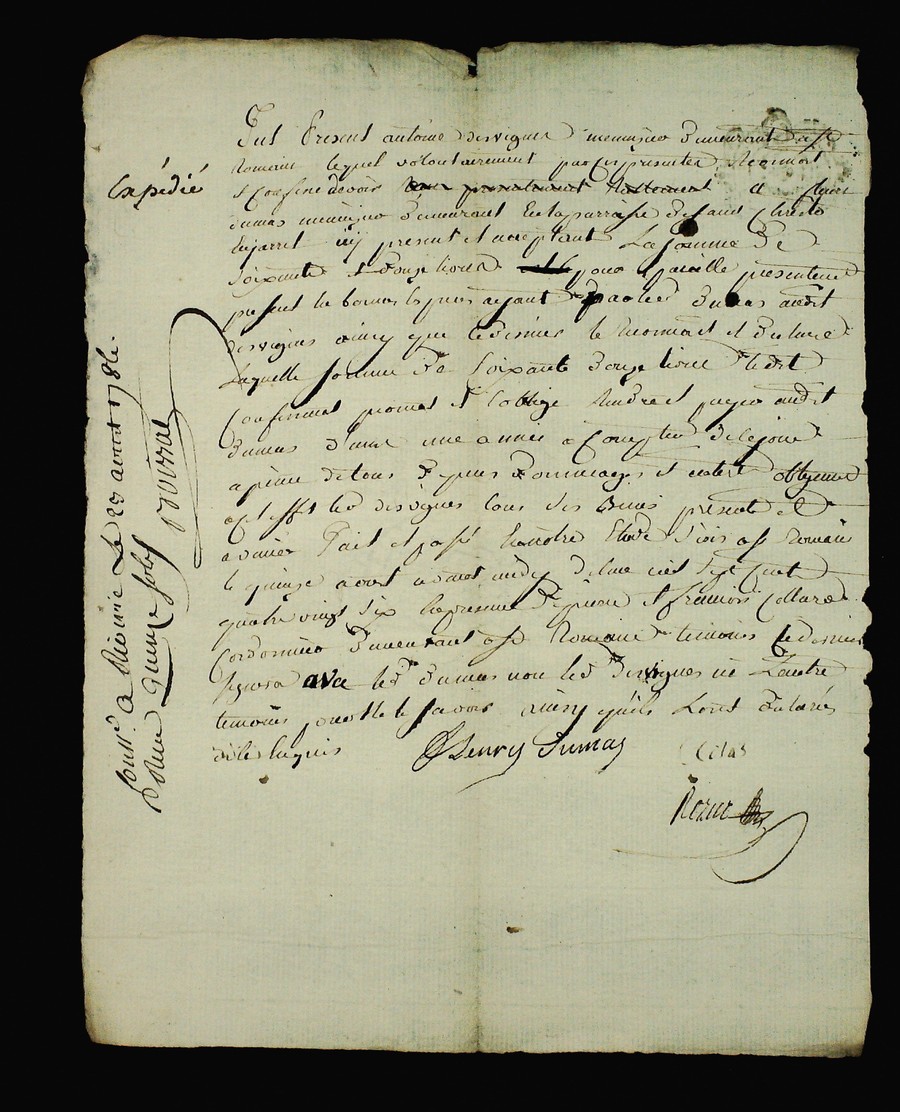 Fut Present antoine desvignes menusier demeurant a st
Romain lequel volontairement par ces presentes Reconnoit
Expédié
et Confesse devoir a henri
dumas menusier demeurant en la parroisse de saint Christo
en jarret icy present et acceptant La somme de
soixante et douze livres pour pareille
present les a
desvignes ainsy que le dernier le Reconnoit et declare
Laquelle somme de soixante douze livres ledit
Confessant promet et s'oblige Rendre et payer audit
dumas dans une année a Compter de ce jour
a peine de tous depens dommages et interet obligeant
a cet effet led desvignes tous ses Biens présents et
avenir Fait et passé en notre Etude a st Romain
le quinze aout avant midy mil sept Cent
quatre vingt six En presence de et francois Collard
Cordonnier demeurant a st Romain temoins le dernier
signera avec led dumas non led desvignes ni L'autre
temoins pour ne le savoir ainsy qu'ils L'ont declarés
de ce Enquis
Henry Dumas
Colas
Rozier
Conllé A Rivirie Le 29 aout 1786.
Reçu quinze sols